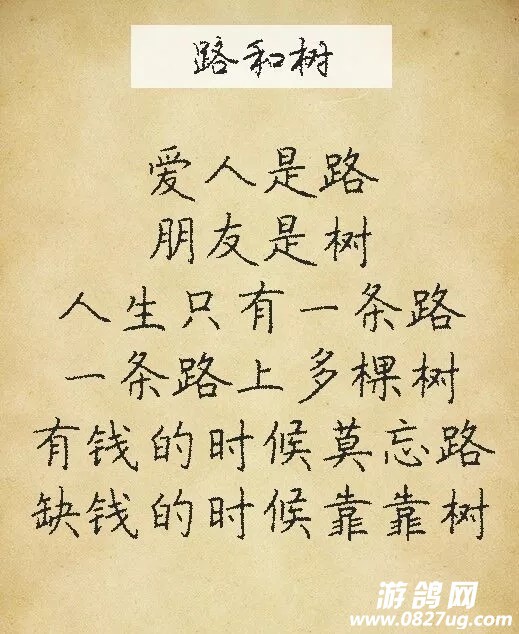 路和树
爱人是路
朋友是树
人生只有一条路
一条路上多棵树
有钱的时候莫忘路
缺钱的时候靠靠树
游鸽网
www.0827ug.com